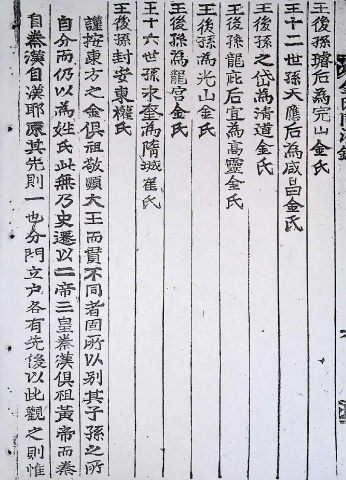 王後孫璹后為完山金氏
王十二世孫天應后為咸昌金氏
王後孫之岱為清道金氏
王後孫龍庇后宜為高靈金氏
王後孫為光山金氏
王後孫為龍宮金氏
王十六世孫永奎為隋城崔氏
王後孫封安東權氏
謹按東方之金俱祖敬順大王而貫不同者固所以別其子孫之所
自分而仍以為姓氏此無乃史遷以二帝三皇秦漢俱祖黃帝而秦
自秦漢自漢耶原其先則一也分門立户各有先後以此觀之則惟